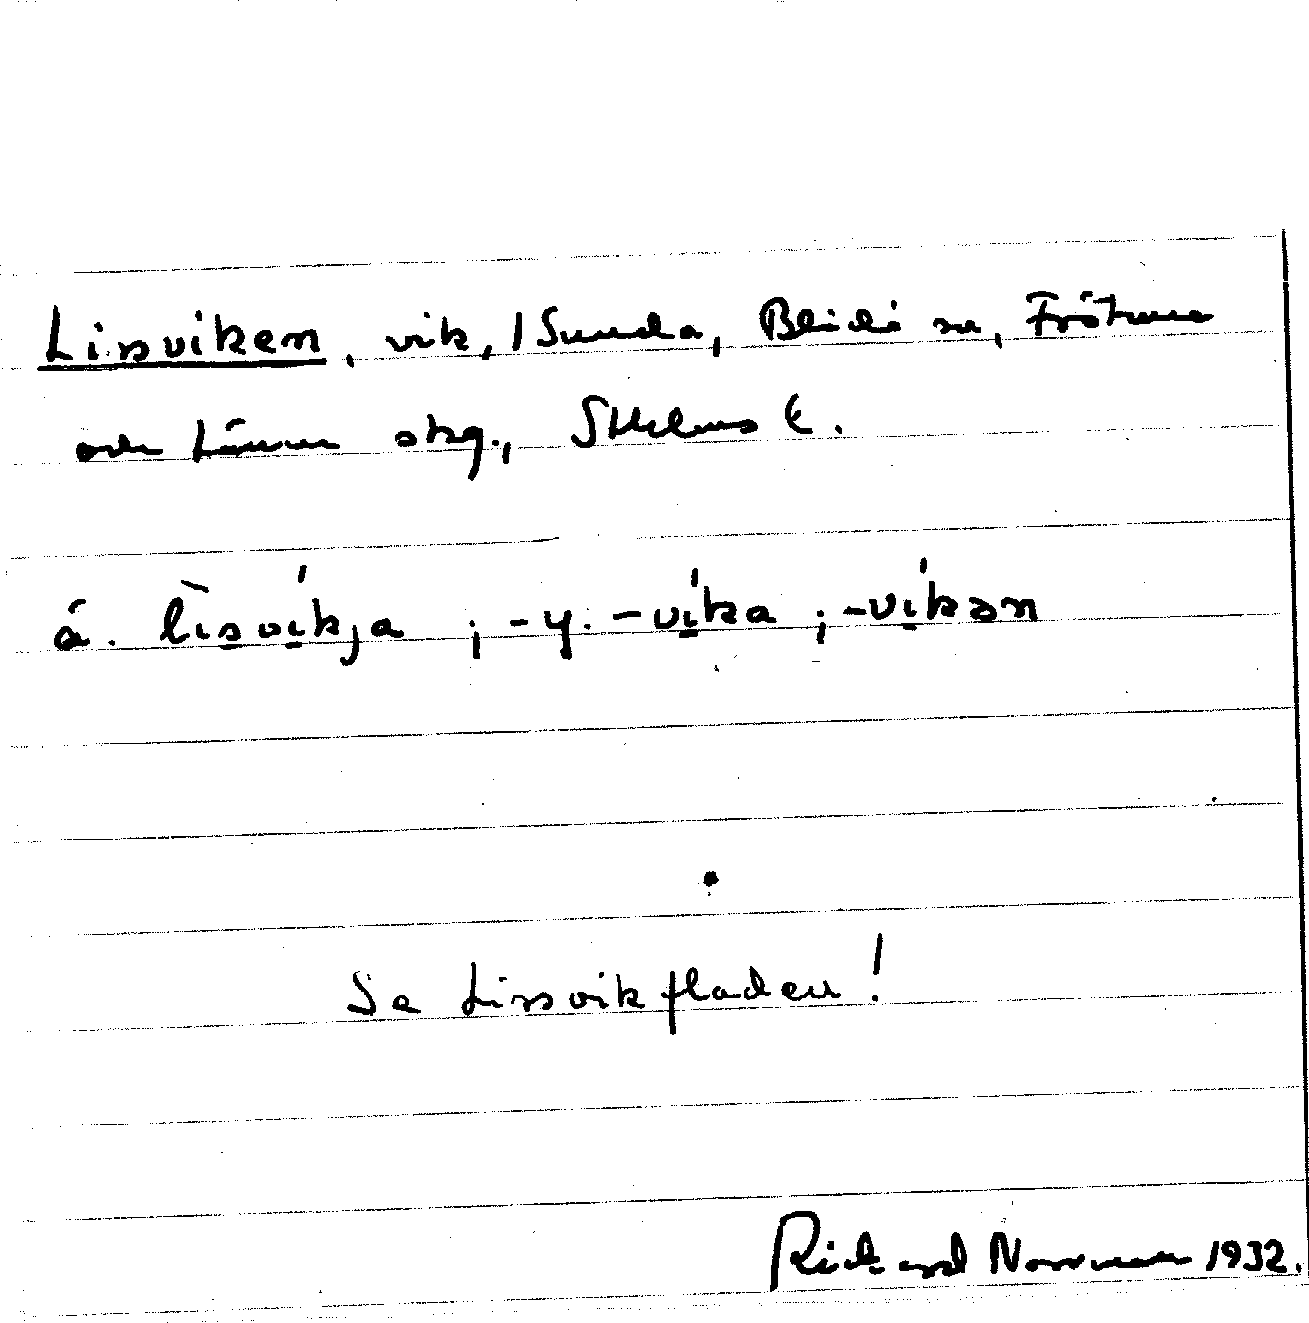 Lissviken, vik, 1 Sunda, Blidö sn, Frötuna
och Länna skg., Sthlms l.
ä. lìsvíkja ; -y. -víka ; -víkən
Se Lissvikfladen!
Richard Norrman 1932.